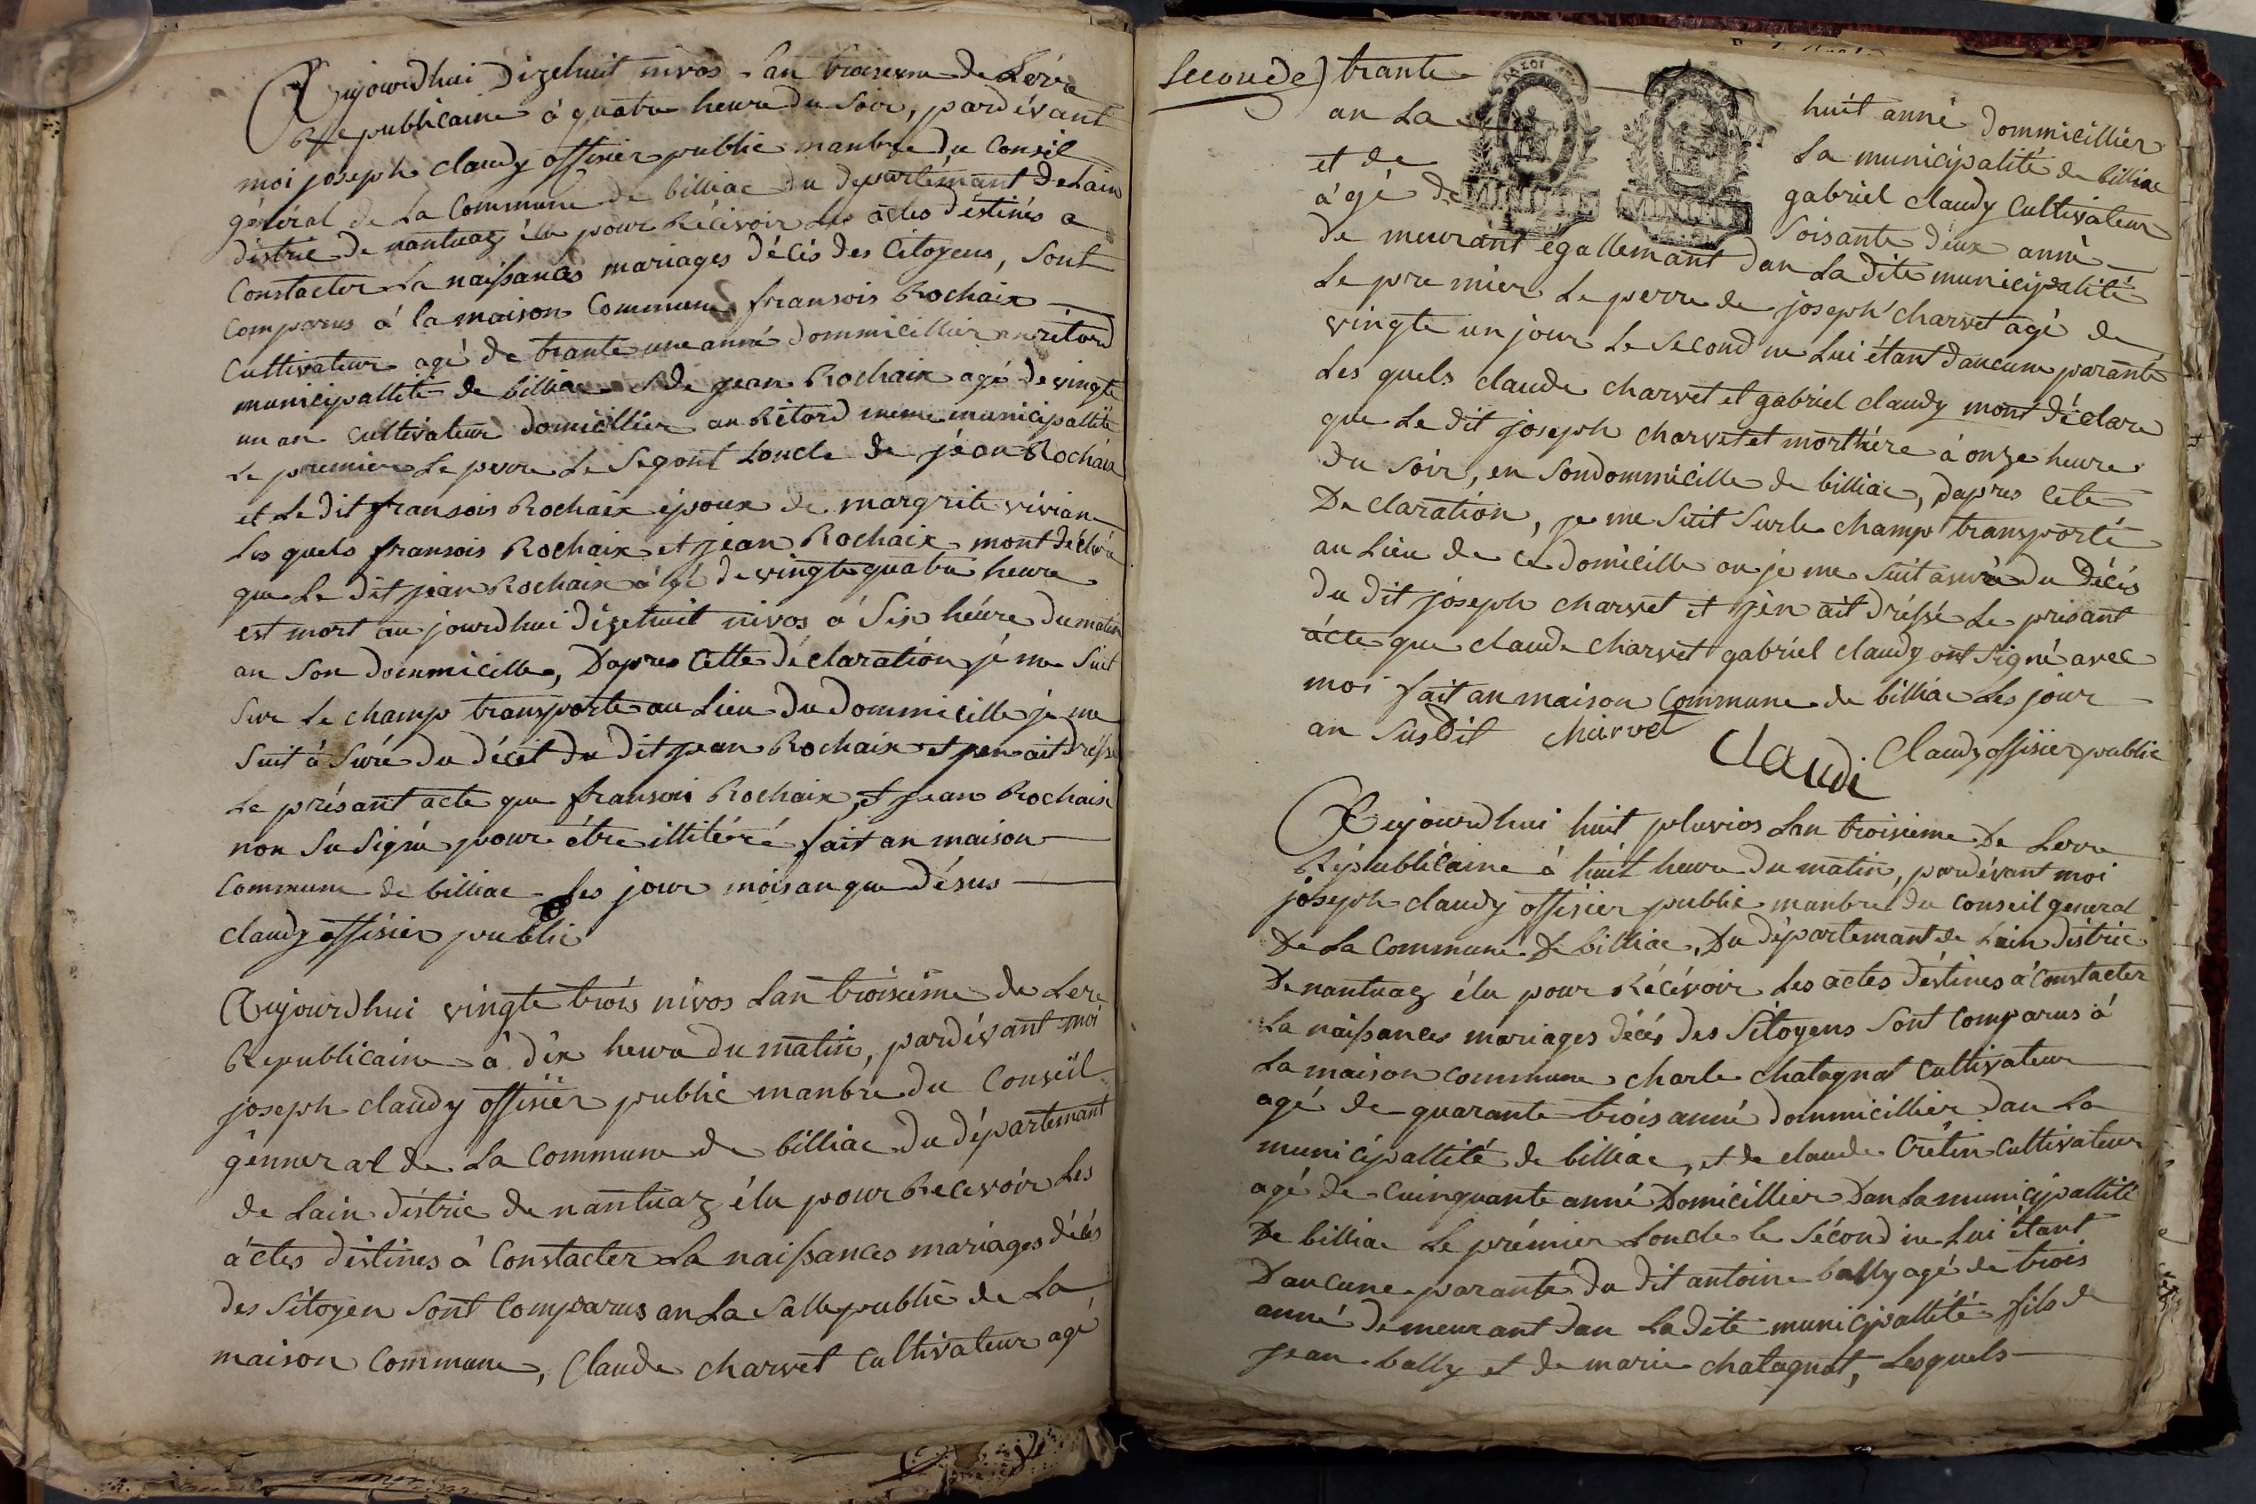 Aujourdhui dizehuit nivos lan troisieme de Lere
Republicaine à quatre heure du soir, pardévant
moi joseph claudy offisier public manbre du Conseil
général de La Commune de billiac du departemant de Lain
distric de nantuaz élu pour Récévoir les actes déstinés a
Constacter La naissances mariages décés des Citoyens, Sont
Comparus à la maison Commune fransois Rochaix
Cultivateur agé de trante une anné dommicillier an rétord
municipallité de billiac et de jean Rochaix agé de vingte
un an cultivateur domicillier au Rétord meme municipallité
Le premier Le perre Le Segont Loncle de jéan Rochaix
et Le dit fransois Rochaix époux de margrite vivian
Les quels fransois Rochaix et jean Rochaix mont déclaré
que Le dit jean Rochaix agé de vingte quatre heure
est mort au jourdhui dizehuit nivos à Six heure du matin
an Son dommicille, Dapres Cette déclaration jé me Suit
Sur Le champ transporte au Lieu Du dommicille je me
Suit à Suré du décét du dit jean Rochaix et jen ait dréssé
Le présant acte que fransois Rochaix et jean Rochaix
non Su Signé pour être illitéré fait an maison
Commune de billiac Les jour mois an que désus
claudy offisier public
Aujourdhui vingte trois nivos Lan troisieme de Lere
Republicaine à dix heure du matin, pardévant moi
joseph claudy offisier public manbre du Conseil
génneral de La Commune de billiac du département
de Lain distric de nantuaz élu pour Recevoir Les
actes déstines à Constacter La naissances mariages décés
des Sitoyen Sont Comparus an La Salle public de La
maison Commune, Claude charvet Cultivateur agé
Seconde) trante huit anné dommicillier
an La municipalité de billiac
et de gabriel claudy Cultivateur
âgé de Soisante deux anné
MINUTE MINUTE
De meurant égallemant dan La dite municipalité
Le premier Le perre de joseph charvet agé de
vingte un jour Le Second ne Lui étant daucune paranté
Les quels claude charvet et gabriel claudy mont déclaré
que Le dit joseph charvet et mort hére à onze heure
du Soir, en Son dommicille de billiac, dapres Cete
Declaration, je me Suit Surle champ transporté
au Lieu de ce domicille ou je me Suit asuré du Décés
du dit joseph charvet et jén ait dréssé Le présant
acte que claude charvet gabriel claudy ont Signé avec
moi fait an maison Commune de billiac Les jour
an Susdit charvet
Claudi Claudy offisier public
Aujourdhui huit pluvios Lan troisieme De Lerre
Républicaine à huit heure du matin, pardévant moi
joseph claudy offisier public manbre du Conseil general
De La Commune De billiac, Du départemant de Lain distric
De nantuaz élu pour Récévoir Les actes déstines à Constacter
La naissances mariages décés des Sitoyens Sont Comparus à
La maison commune charle chatagnat Cultivateur
agé de quarante trois anné dommicillier dan La
municipallité de billiac, et de claude Crétin Cultivateur
agé de Cuinquante anné Domicillier Dan La municipallité
De billiac Le prémier Loncle le Sécond ne Lui étant
Daucune paranté du dit antoine bally agé de trois
anné demeurant dan La dite municipallité fils de
jean bally et de marie chatagnat, Lesquels